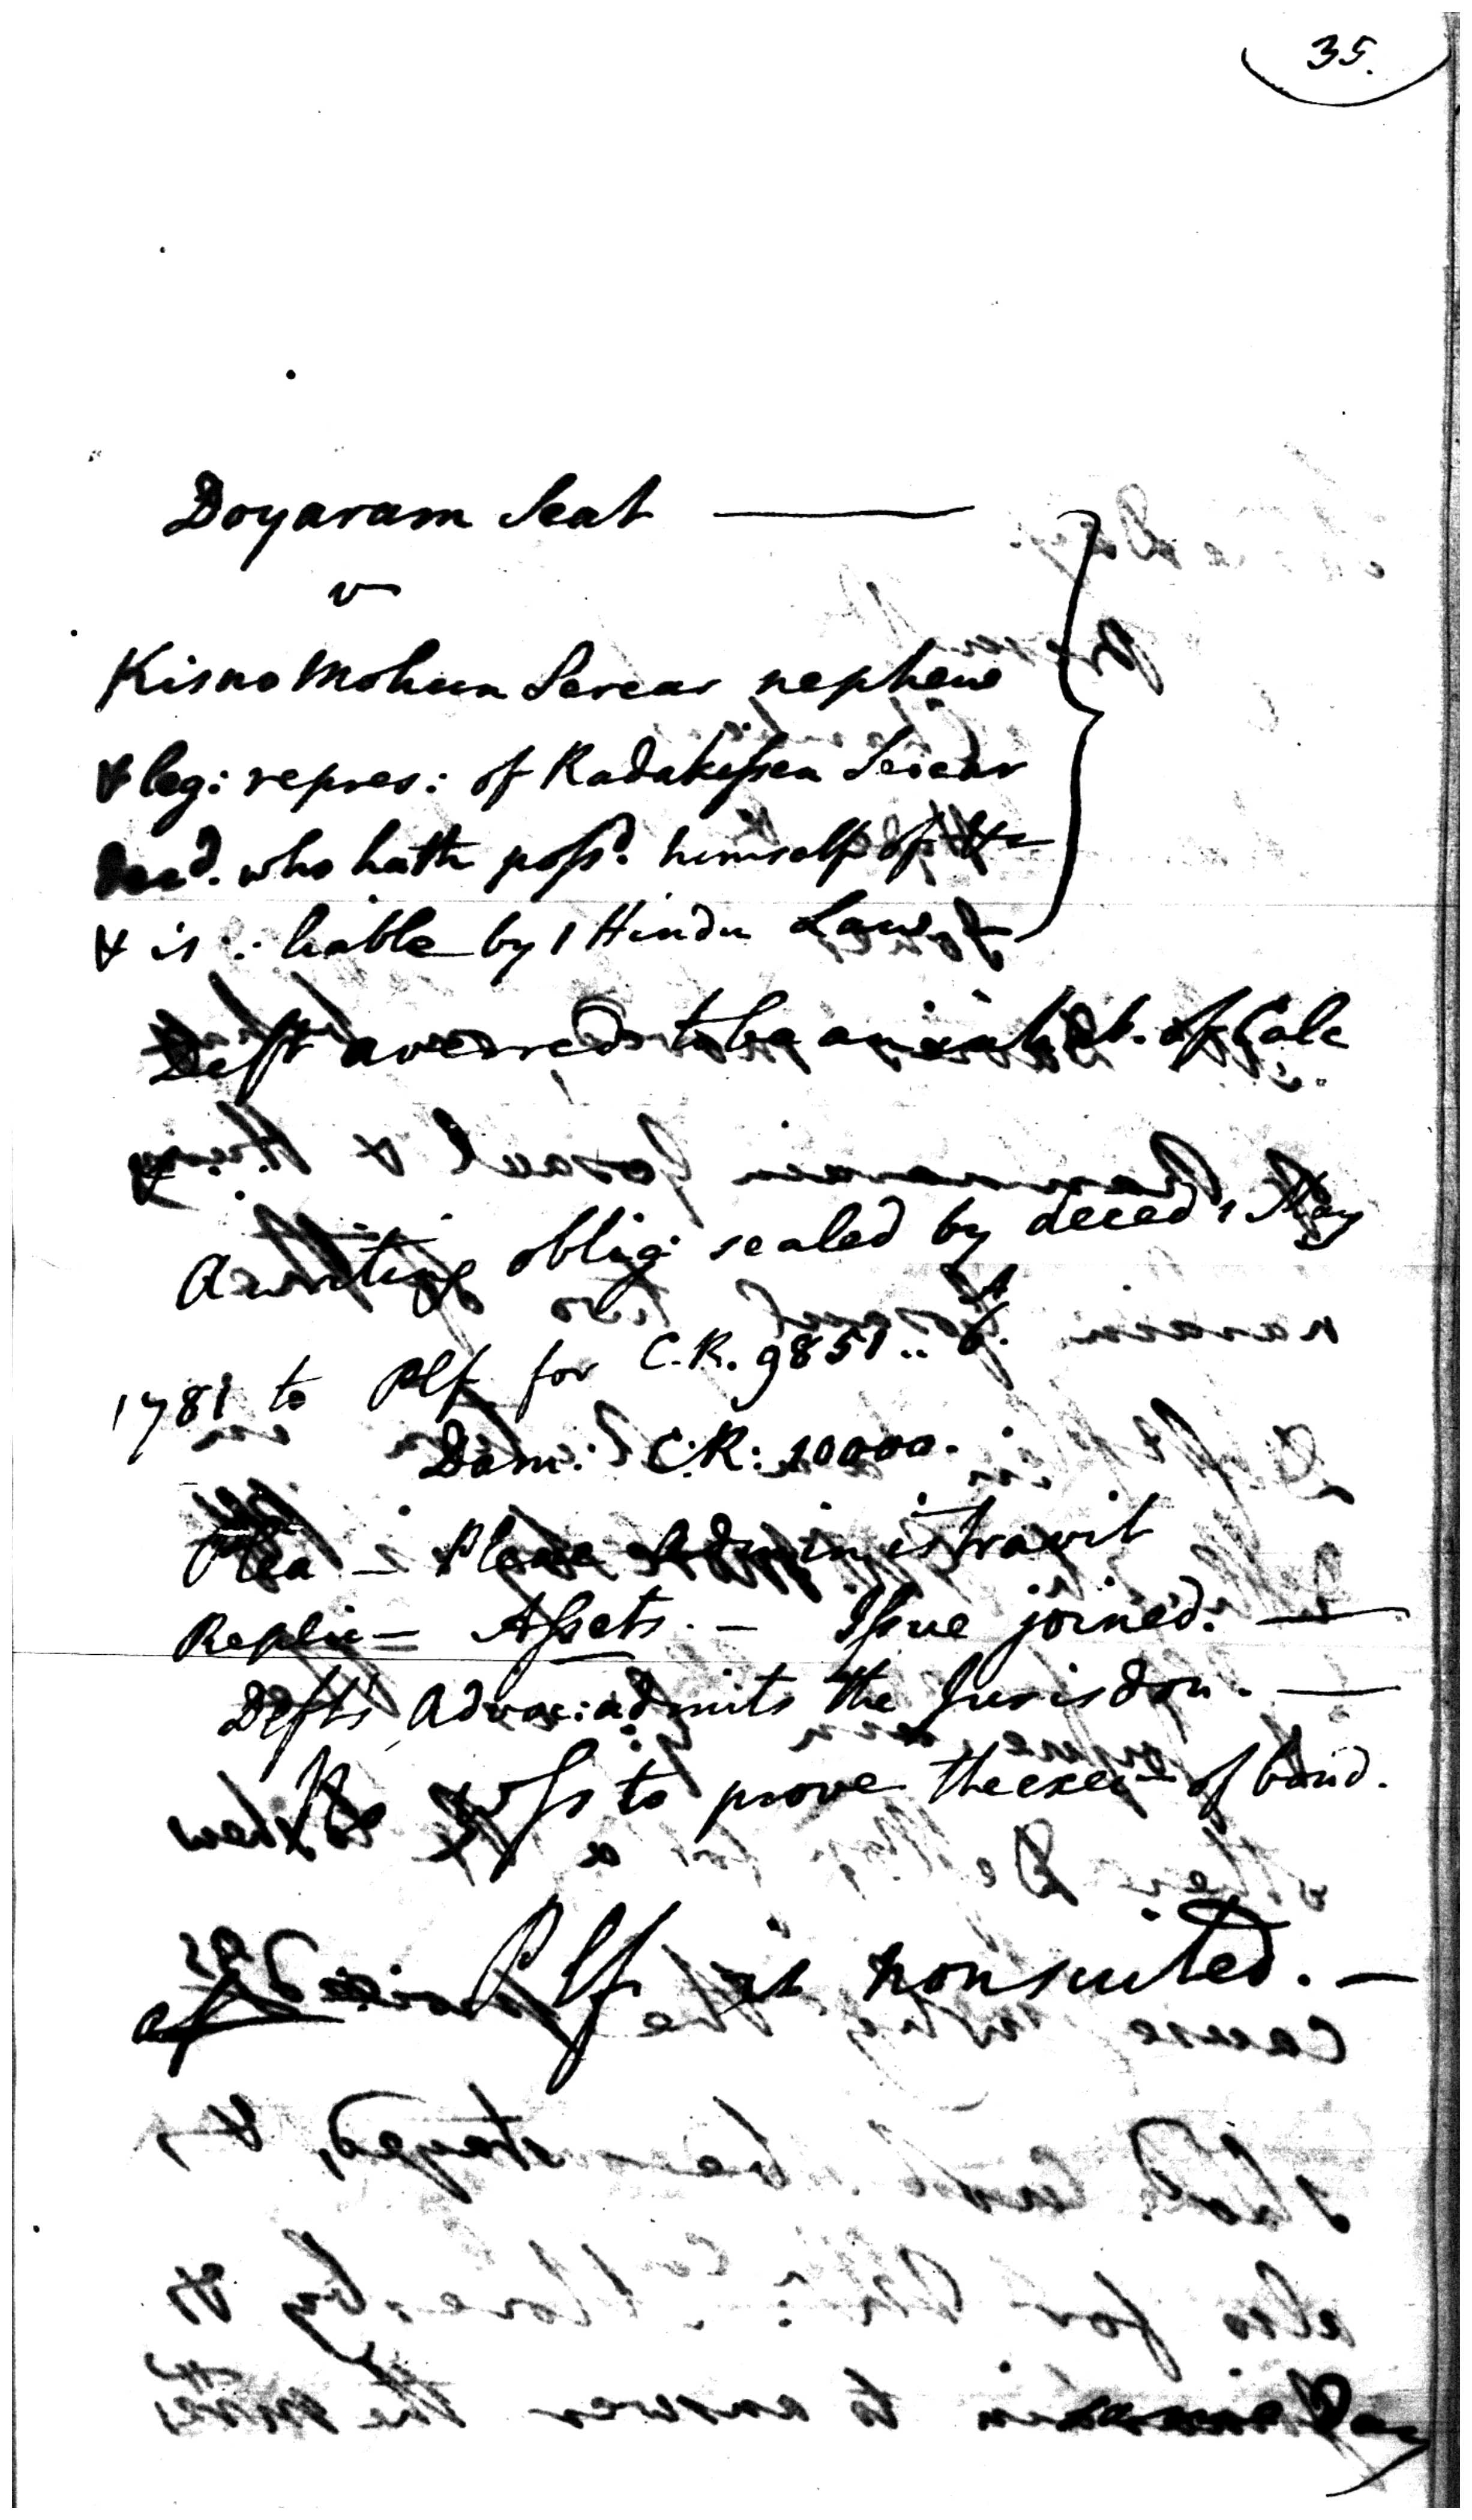 35.
Doyaram Seat —
v
Kisno Mohun Sercar nephew
& leg: repres: of Radakissen Sercar
decd. who hath possd. himself of &c
& is ∴ liable by 1 Hindu Law.
Deft averred to be an inhabt. of Calc
A writing oblig: sealed by deced 1 May
1781 to Plf for C.R. 9851..
Dam: C:R: 10000.
Plea — Plene Administravit
Replic — Assets. — Issue joined. —
Defts Advoc: admits the Jurisdon. —
to prove the execn of bond.
Plf is nonsuited. —